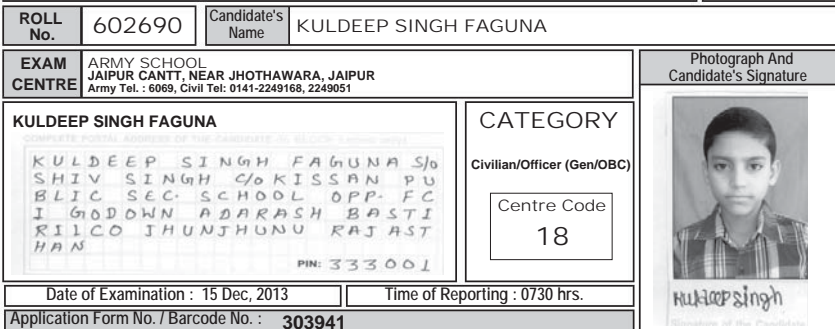 ROLL No. 602690 Candidate's Name KULDEEP SINGH FAGUNA
EXAM CENTRE
ARMY SCHOOL
JAIPUR CANTT, NEAR JHOTHAWARA, JAIPUR
Army Tel. : 6069, Civil Tel: 0141-2249168, 2249051
Photograph And
Candidate's Signature
KULDEEP SINGH FAGUNA
COMPLETE POSTAL ADDRESS OF THE CANDIDATE
KULDEEP SINGH FAGUNA S/o
SHIV SINGH C/o KISSAN PU
BLIC SEC. SCHOOL OPP. FC
I GODOWN ADARASH BASTI
RIICO JHUNJHUNU RAJAST
HAN
PIN: 333001
CATEGORY
Civilian/Officer (Gen/OBC)
Centre Code
18
Kuldeep Singh
Signature of the Candidate
Date of Examination : 15 Dec, 2013
Time of Reporting : 0730 hrs.
Application Form No. / Barcode No. : 303941